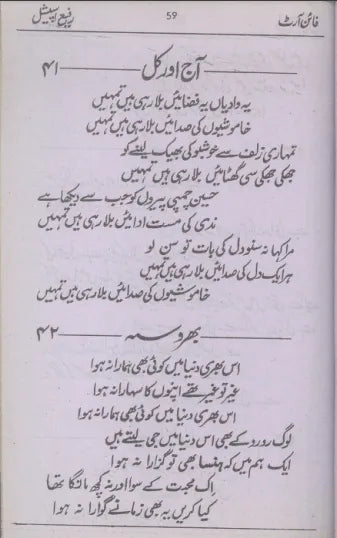 فائن آرٹ
59
رفیع اسپیشل
۴۱ — آج اور کل
یہ وادیاں یہ فضائیں بلا رہی ہیں تمہیں
خاموشیوں کی صدائیں بلا رہی ہیں تمہیں
تمہاری زلف سے خوشبو کی بھیک لینے کو
جھکی جھکی سی گھٹائیں بلا رہی ہیں تمہیں
حسین چمپئی پیروں کو جب سے دیکھا ہے
ندی کی مست ادائیں بلا رہی ہیں تمہیں
مرا کہا نہ سنو دل کی بات تو سن لو
ہر ایک دل کی صدائیں بلا رہی ہیں تمہیں
خاموشیوں کی صدائیں بلا رہی ہیں تمہیں
۴۲ — بھروسہ
اس بھری دنیا میں کوئی بھی ہمارا نہ ہوا
غیر تو غیر تھے اپنوں کا سہارا نہ ہوا
اس بھری دنیا میں کوئی بھی ہمارا نہ ہوا
لوگ رو رو کے بھی اس دنیا میں جی لیتے ہیں
ایک ہم ہیں کہ ہنسا بھی تو گزارا نہ ہوا
اک محبت کے سوا اور نہ کچھ مانگا تھا
کیا کریں یہ بھی زمانے گوارا نہ ہوا